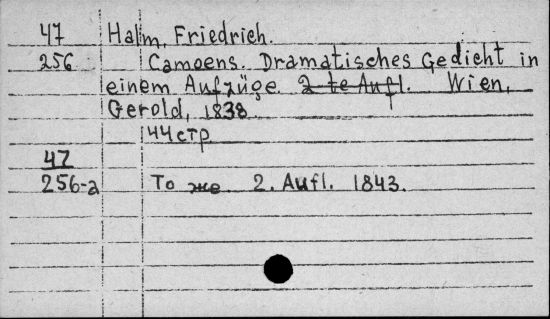 47 Halm, Friedrich.
256 Camoens. Dramatisches Gedicht in
einem Aufzüge. 2-te Aufl. Wien,
Gerold, 1838.
44 стр
47
256-a То же 2. Aufl. 1843.